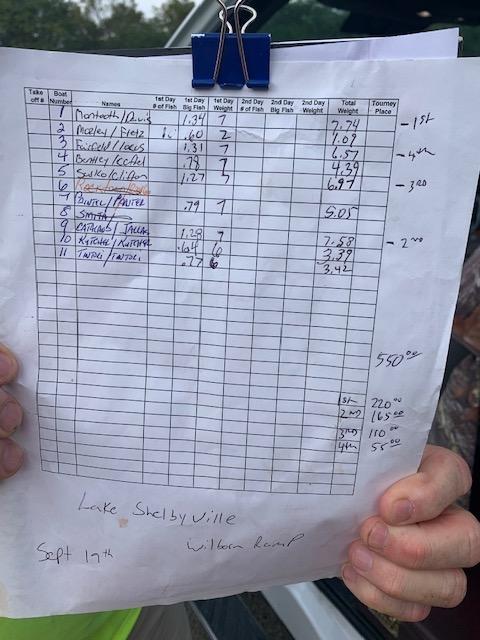 Take off # Boat Number Names 1st Day # of Fish 1st Day Big Fish 1st Day Weight 2nd Day # of Fish 2nd Day Big Fish 2nd Day Weight Total Weight Tourney Place
1 Monteath/Davis 1.34 7 7.74 - 1st
2 Mosley/Fretz .60 2 1.09
3 Fairfield/ 1.31 7 6.57 - 4th
4 Bentley/ .79 7 4.39
5 1.27 7 6.97 - 3RD
6
7 PAINTER/PAINTER .79 7 5.05
8 SMITH/
9 1.28 7 7.58 - 2nd
10 KUTCHER/KUTCHER .64 6 3.39
11 TINTORI/TINTORI .77 6 3.42
550.00
1st 220.00
2ND 165.00
3RD 110.00
4th 55.00
Lake Shelbyville
Sept 19th Wilborn Ramp